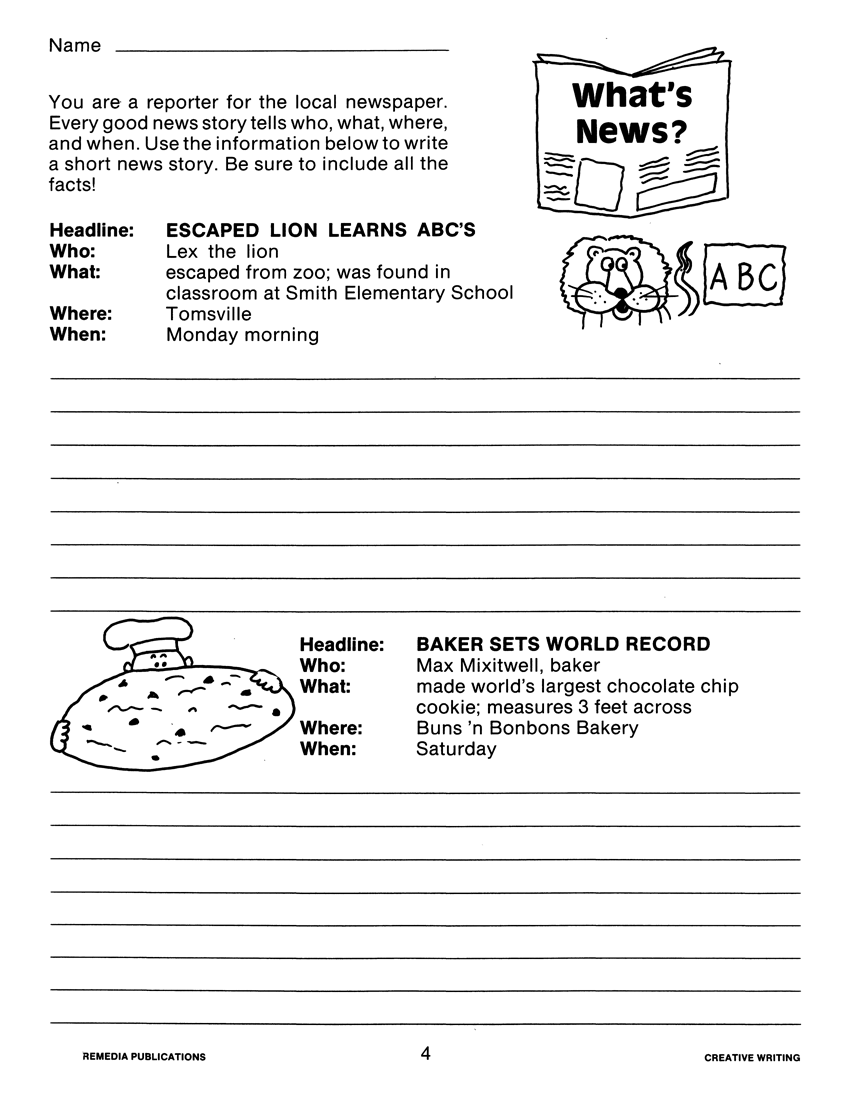 Name
What's
News?
You are a reporter for the local newspaper.
Every good news story tells who, what, where,
and when. Use the information below to write
a short news story. Be sure to include all the
facts!
Headline: ESCAPED LION LEARNS ABC'S
Who: Lex the lion
What: escaped from zoo; was found in
classroom at Smith Elementary School
Where: Tomsville
When: Monday morning
A B C
Headline: BAKER SETS WORLD RECORD
Who: Max Mixitwell, baker
What: made world's largest chocolate chip
cookie; measures 3 feet across
Where: Buns 'n Bonbons Bakery
When: Saturday
REMEDIA PUBLICATIONS
4
CREATIVE WRITING